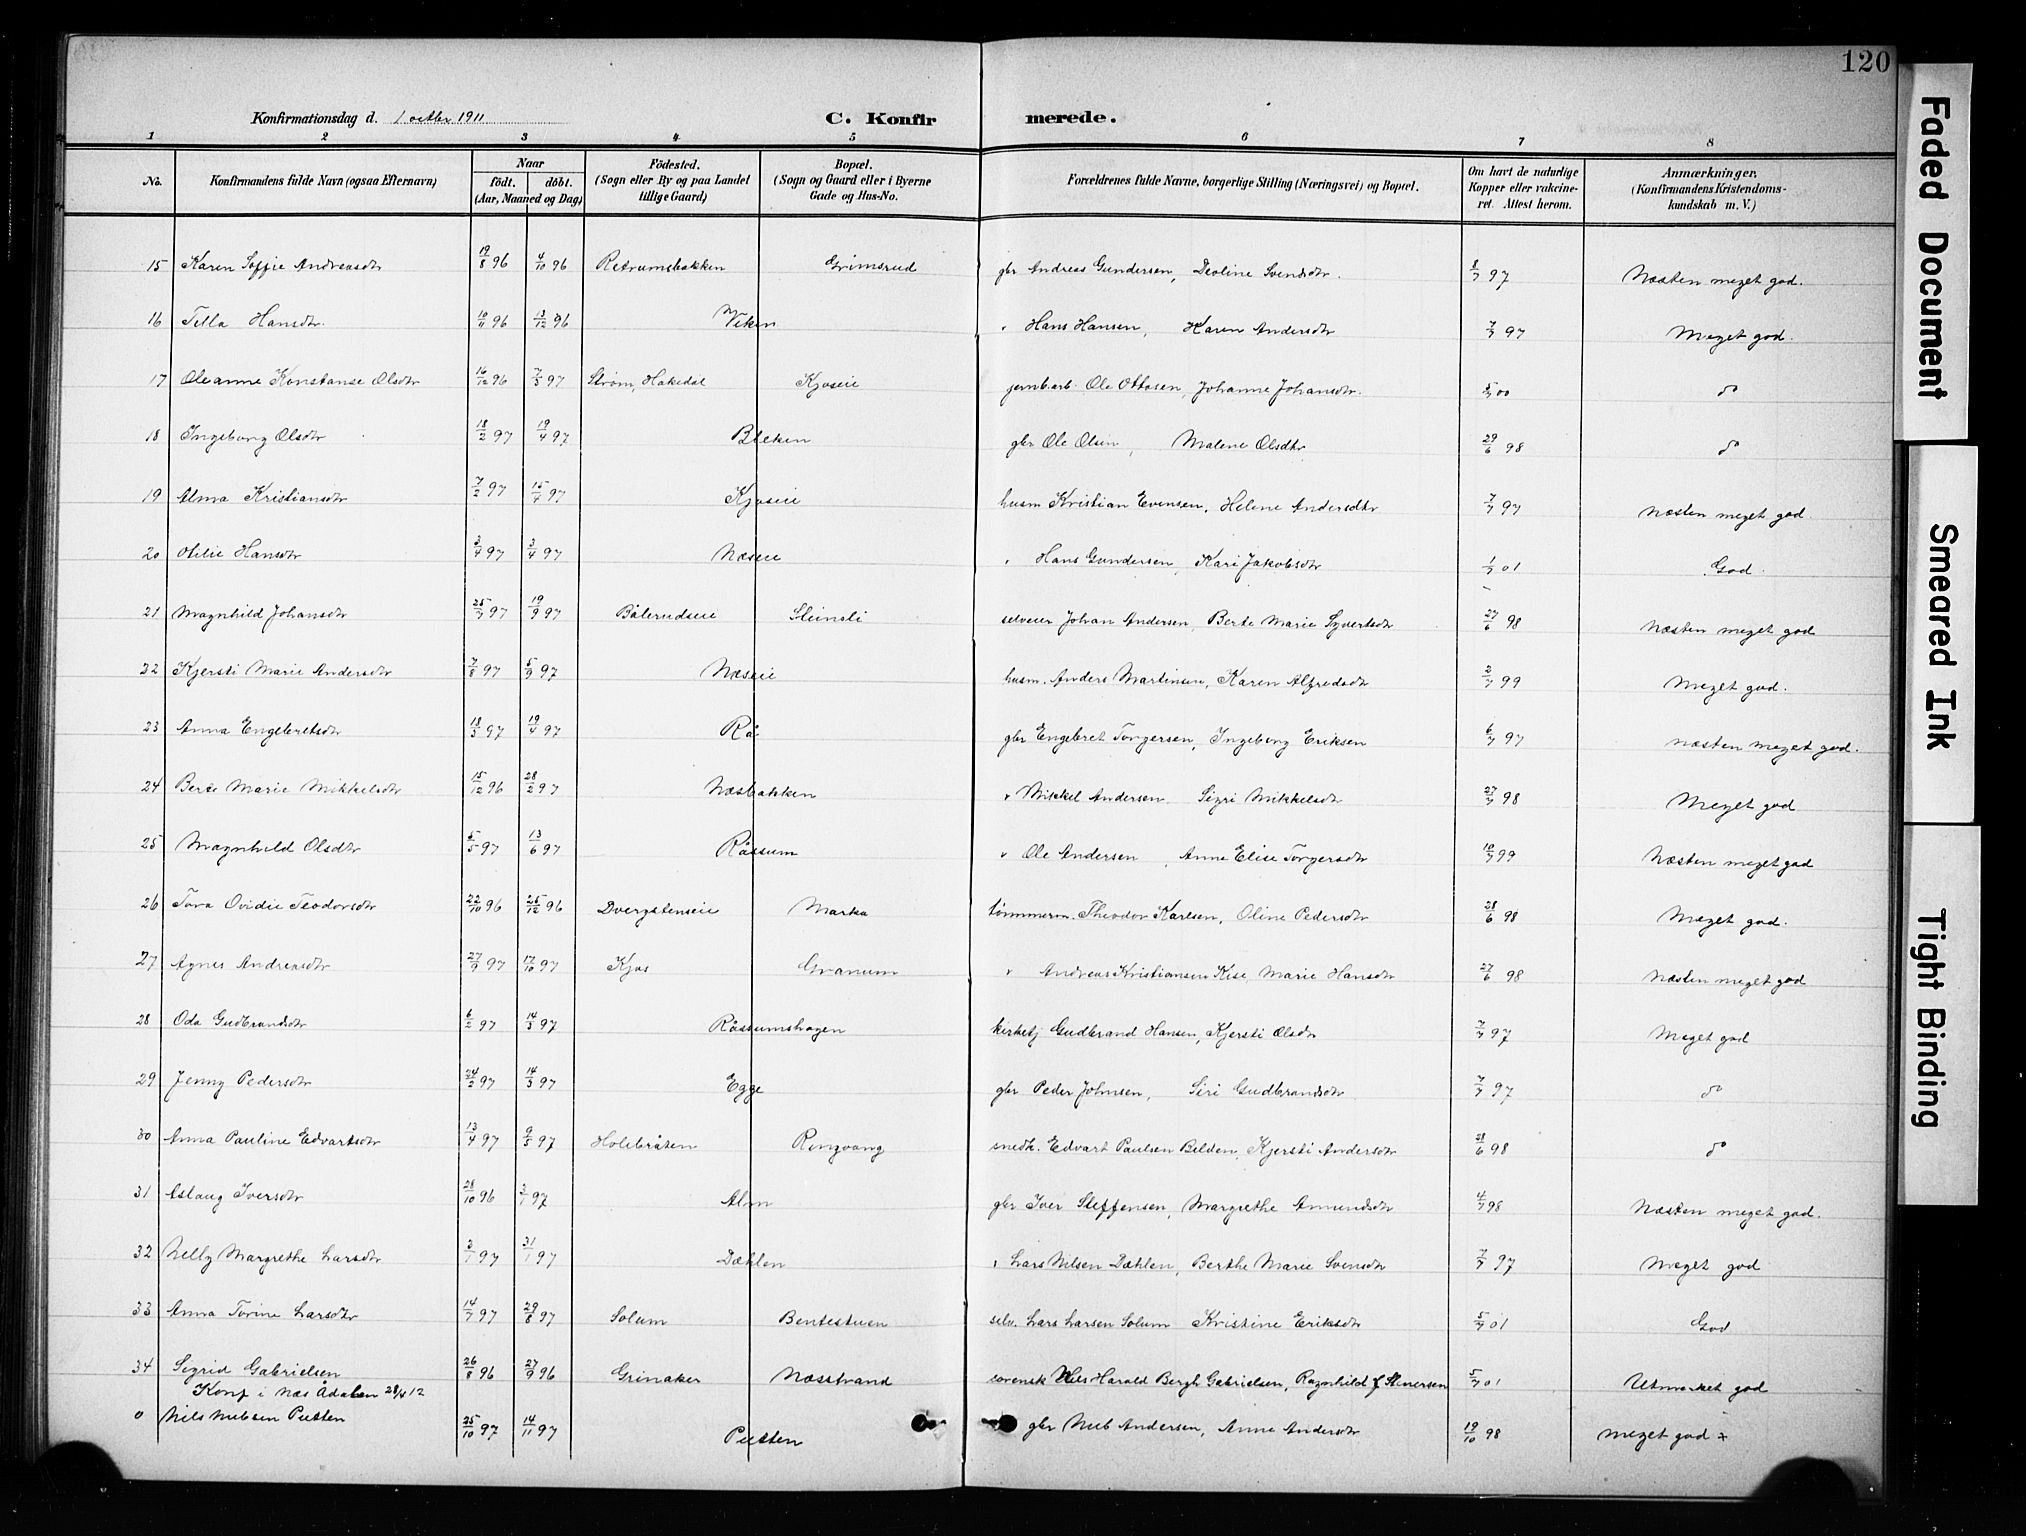 120
Konfirmationsdag d. 1 octbr 1911 C. Konfirmerede.
1 2 3 4 5 6 7 8
No. Konfirmandens fulde Navn (ogsaa Efternavn) Naar født. døbt. (Aar, Maaned og Dag) Födested. (Sogn eller By og paa Landet tillige Gaard) Bopæl. (Sogn og Gaard eller i Byerne Gade og Hus-No. Forældrenes fulde Navne, borgerlige Stilling (Næringsvei) og Bopæl. Om havt de naturlige Kopper eller vakcineret. Attest herom. Anmærkninger. (Konfirmandens Kristendomskundskab m. V.)
15 Karen Soffie Andreasdtr 19/8 96 4/10 96 Retrumsbakken Grimsrud gbr Andreas Gundersen, Deoline Svendsdtr. 8/7 97 Næsten meget god.
16 Tilla Hansdtr. 10/11 96 13/12 96 Viken " Hans Hansen, Karen Andersdtr 7/7 97 Meget god.
17 Oleanne Konstanse Olsdtr 16/12 96 7/3 97 Strøm, Hakedal Kjoseie jernbarb. Ole Ottosen, Johanne Johansdtr. 5/7 00 do
18 Ingeborg Olsdtr 18/2 97 19/4 97 Bleken gbr Ole Olsen, Malene Olsdtr 29/6 98 do
19 Alma Kristiansdtr 7/2 97 15/4 97 Kjoseie husm Kristian Evensen, Helene Andersdtr 7/7 97 Næsten meget god
20 Otilie Hansdtr 3/4 97 Næseie " Hans Gundersen, Kari Jakobsdtr 1/7 01 God.
21 Magnhild Johansdtr 25/7 97 19/9 97 Bålerudseie Steinsli selveier Johan Andersen, Berte Marie Syvertsdtr 27/6 98 Næsten meget god
22 Kjersti Marie Andersdtr 7/8 97 5/9 97 Næseie husm. Anders Martinsen, Karen Alfredsdtr 2/7 99 Meget god.
23 Anna Engebretsdtr 18/3 97 19/4 97 Rå gbr Engebret Torgersen, Ingeborg Eriksen 6/7 97 næsten meget god.
24 Berte Marie Mikkelsdtr 15/12 96 28/2 97 Næsbakken " Mikkel Andersen Sigri Mikkelsdtr 27/7 98 Meget god
25 Magnhild Olsdtr 5/5 97 13/6 97 Råssum " Ole Andersen, Anne Elise Torgersdtr 10/7 99 Næsten meget god
26 Tora Ovidie Teodorsdtr 22/10 96 25/12 96 Dvergstenseie Marka tømmerm. Theodor Karlsen, Oline Pedersdtr 28/6 98 Meget god.
27 Agnes Andreasdtr 27/9 97 17/10 97 Kjos Granum " Andreas Kristiansen Kise, Marie Hansdtr 27/6 98 Næsten meget god
28 Oda Gudbrandsdtr 6/2 97 14/3 97 Råssumshagen kirketj Gudbrand Hansen, Kjersti Olsdtr 7/7 97 Meget god
29 Jenny Pedersdtr 24/2 97 14/3 97 Egge gbr Peder Johnsen, Siri Gudbrandsdtr 7/7 97 do
30 Anna Pauline Edvartsdtr 13/4 97 9/5 97 Holebråten Ringvang snedk. Edvart Paulsen Bilden, Kjersti Andersdtr 28/6 98 do
31 Aslaug Iversdtr 28/10 96 3/1 97 Alm gbr Iver Steffensen, Margrethe Amundsdtr 4/7 98 Næsten meget god.
32 Nelly Margrethe Larsdtr 3/1 97 31/1 97 Dæhlen " Lars Nilsen Dæhlen, Berthe Marie Svensdtr 7/7 97 Meget god
33 Anna Torine Larsdtr 14/7 97 29/8 97 Solum Bentestuen selv. Lars Larsen Solum Kristine Eriksdtr 5/7 01 God
34 Sigrid Gabrielsen 26/8 96 27/9 96 Grinaker Næsstrand sorensk Nils Harald Bergh Gabrielsen, Ragnhild f. Stenersen 5/7 01 Utmærket god
Konf i Næs Ådalen 28/4 12
0 Nils Nubsen Putten 25/10 97 14/11 97 Putten gbr Nub Andersen, Anne Andersdtr 19/10 98 meget god
Faded Document
Smeared Ink
Tight Binding